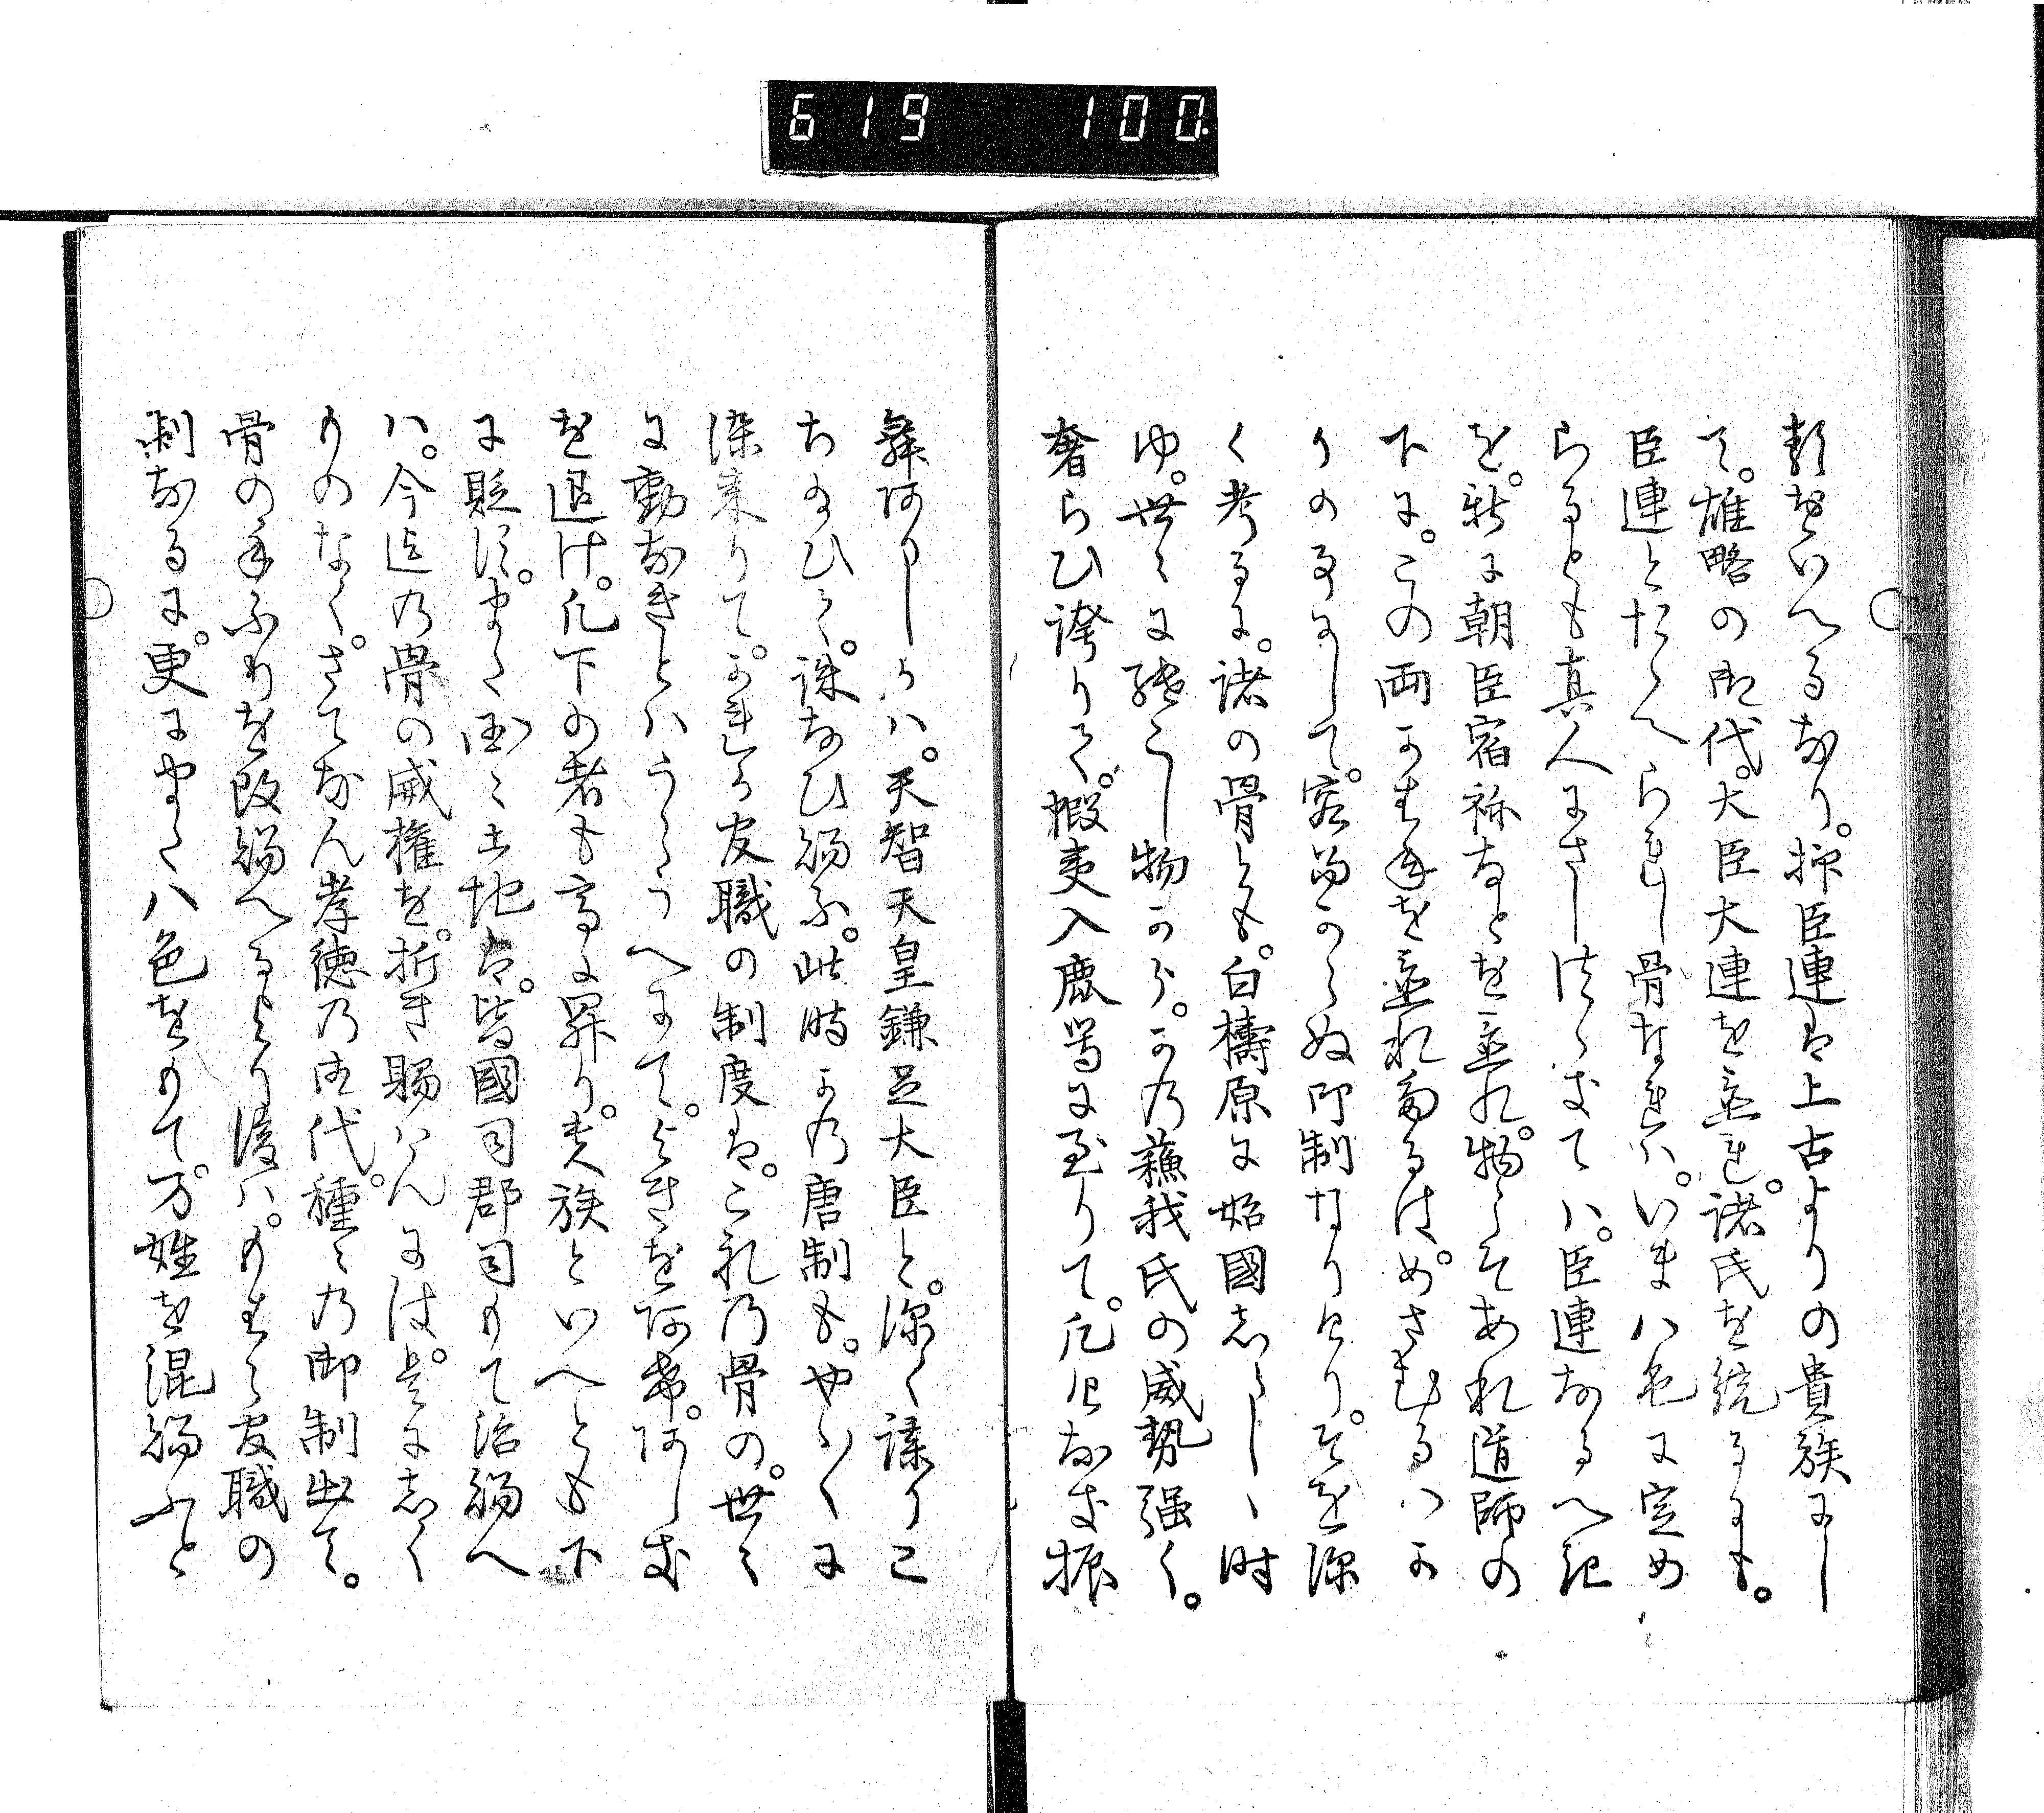 619 100.
類をいへるなり。抑臣連は上古よりの貴族にし
て。雄略の御代。大臣大連を立置れ。諸氏を統るにも。
臣連とたゝへられし骨なれは。いま八色に定め
らるとも真人にさしつゝきては。臣連なるへき
を。新に朝臣宿祢なとを立れ。物こそあれ道師の
下に。この両かはねを立れたるは。めさむるはか
りのことにして。容易からぬ御制なりけり。そを深
く考るに。諸の骨とも。白檮原に始國しらしゝ時
ゆ。世々に継こし物から。かの蘇我氏の威勢强く。
奢らひ誇りて。蝦夷入鹿等に至りて。凡けなき振
舞ありしかは。天智天皇鎌足大臣と。深く謀りこ
ちたまひて。誅なひ賜ふ。此時かの唐制も。やうやくに
染来りて。かれか官職の制度は。これの骨の。世々
に動なきとはうらうへにて。よきをあけ。あしき
を退け。凡下の者も高に昇り。貴族といへとも下
に貶す。また国々土地は。皆國司郡司もて治賜へ
は。今迄の骨の威権を。折き賜はんには。是にしく
ものなく。さてなん孝徳の御代。種々の御制出て。
骨の手ふりを改賜へるより後は。もはら官職の
制なるに。更にまた八色をもて。万姓を混賜ふと